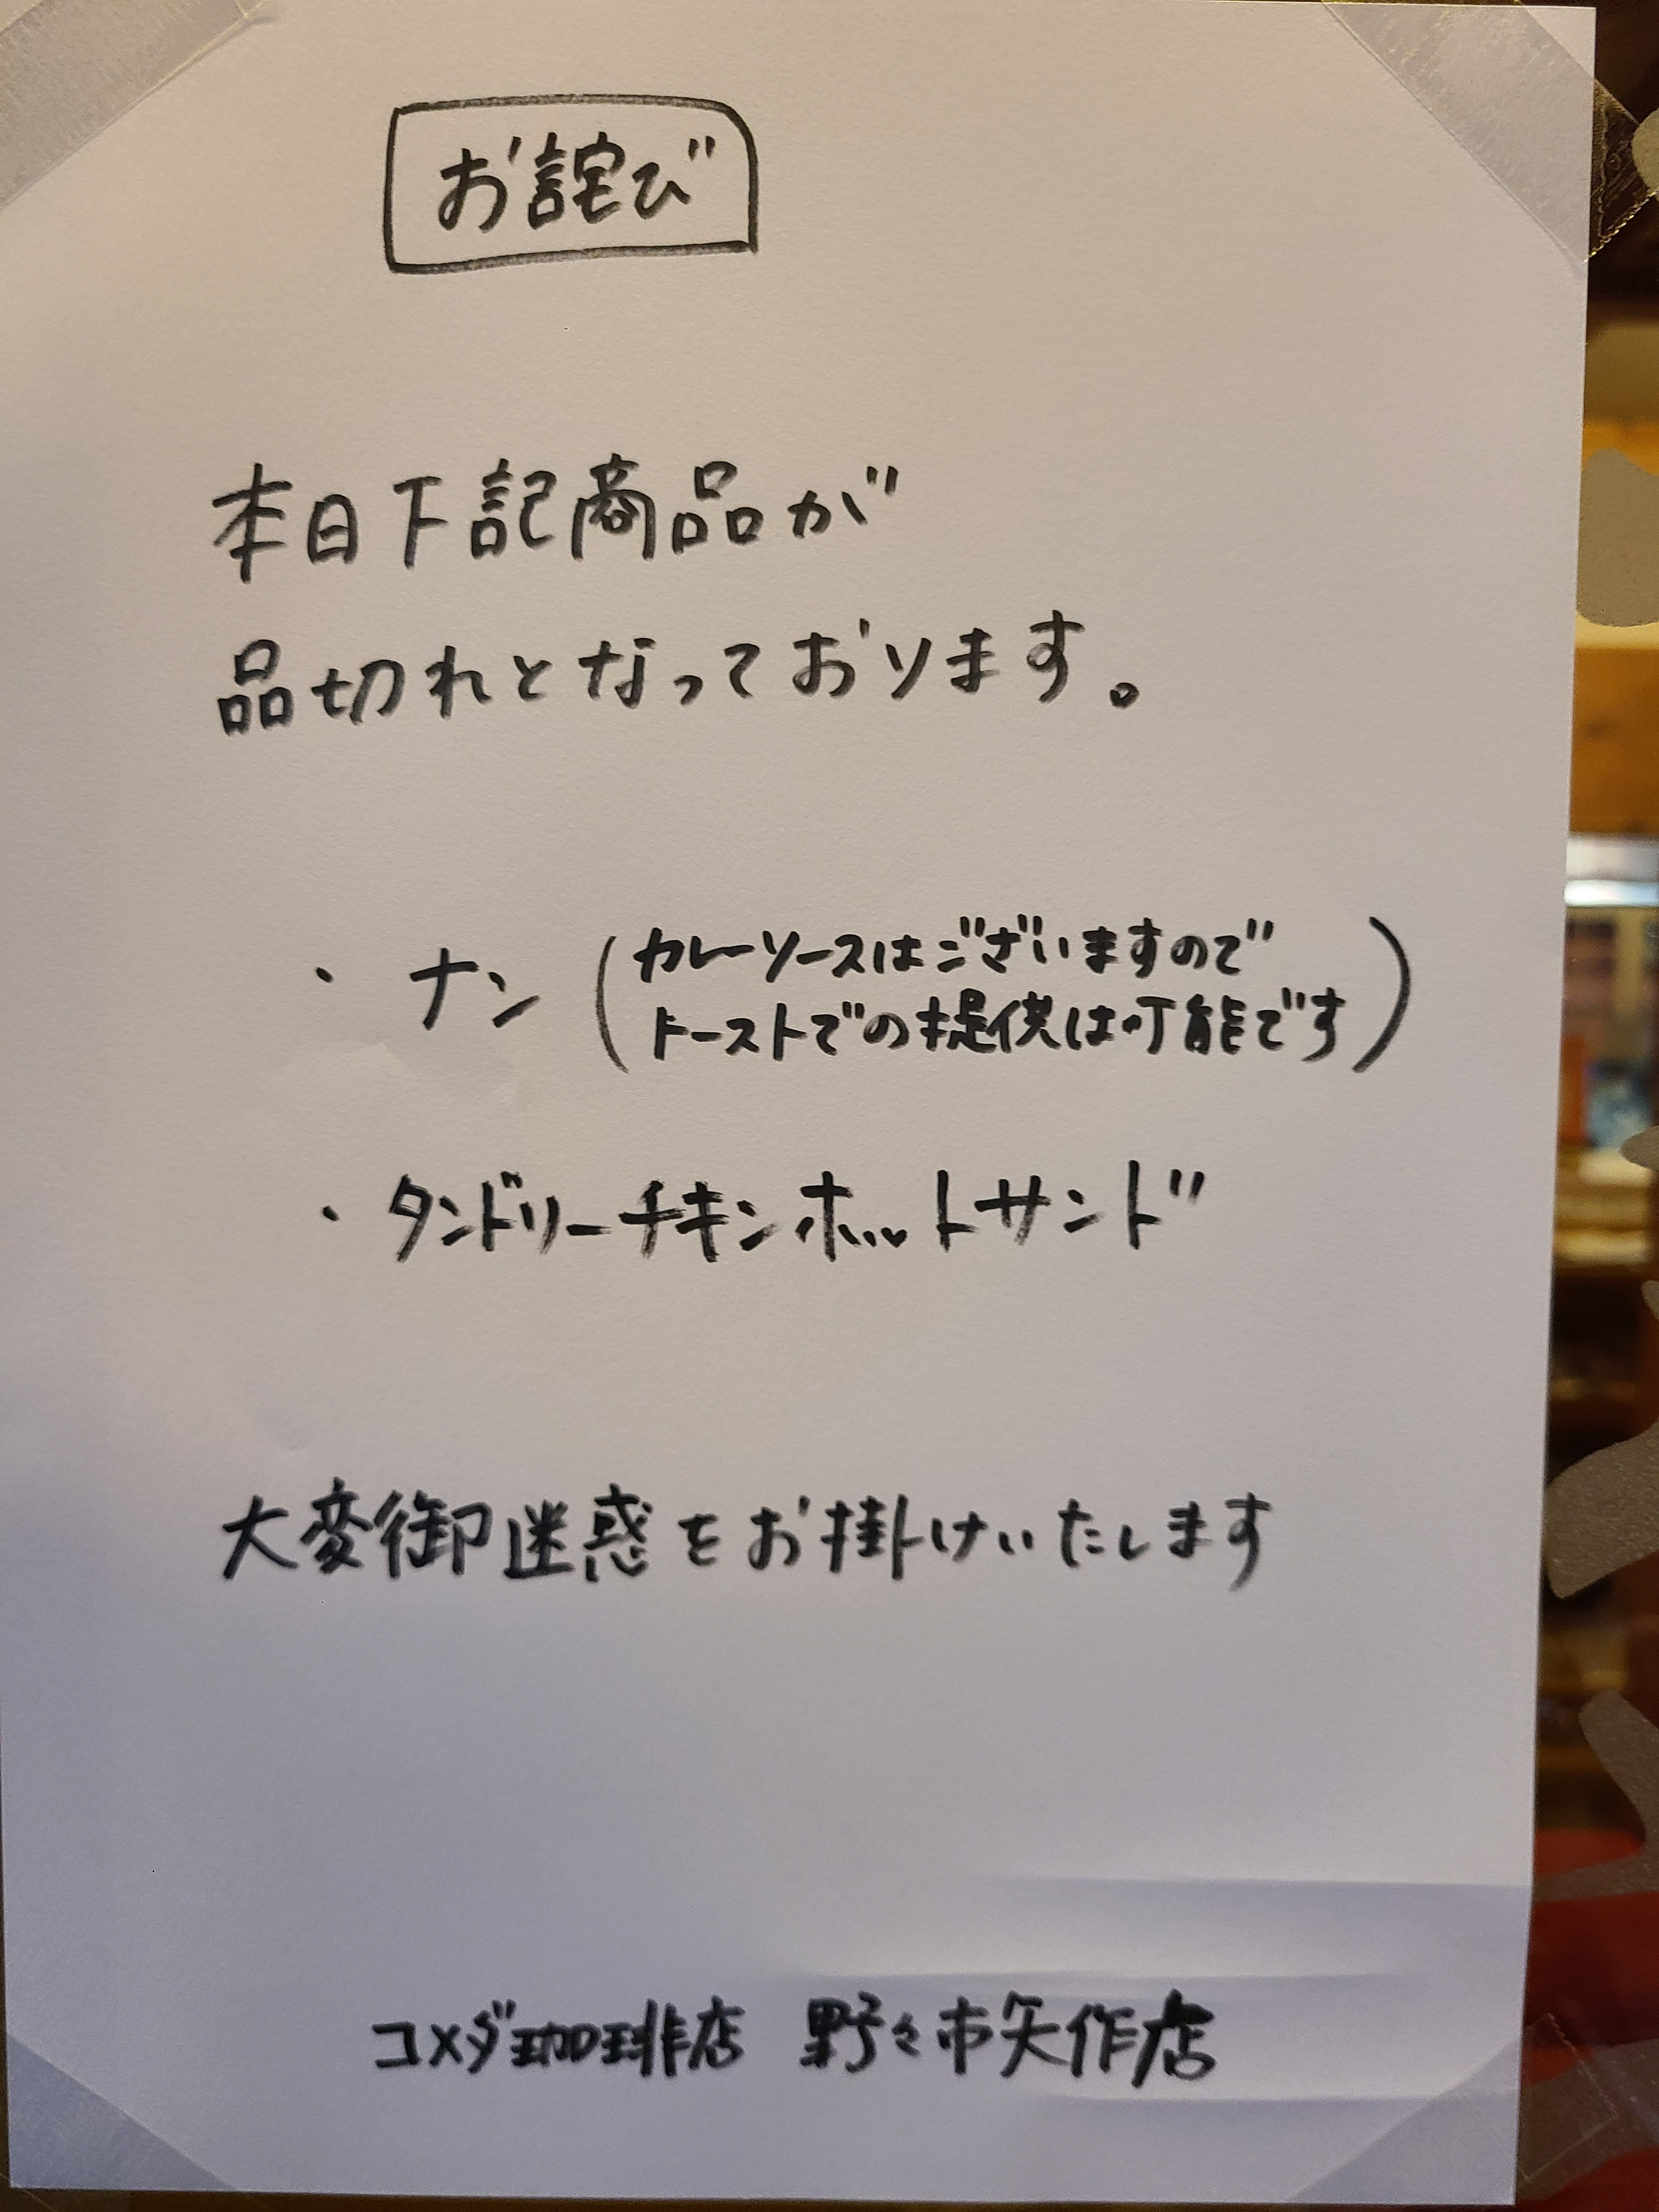 お詫び
本日下記商品が
品切れとなっております。
・ナン(カレーソースはございますので
トーストでの提供は可能です)
・タンドリーチキンホットサンド
大変御迷惑をお掛けいたします
コメダ珈琲店 野々市矢作店